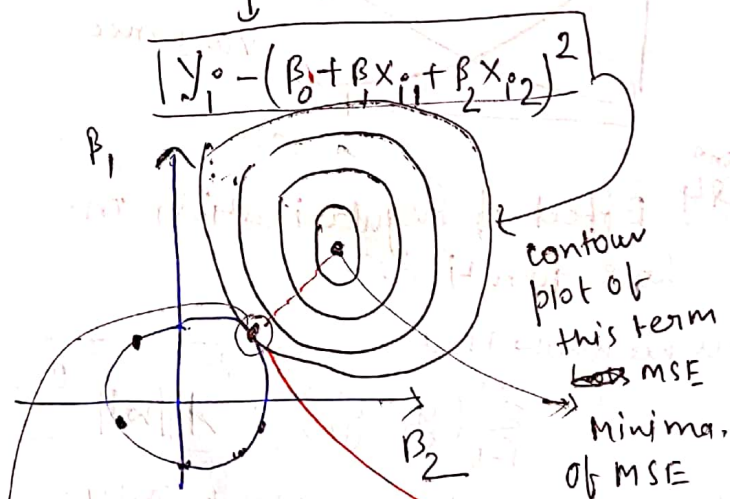 |y_i - (β_0 + β_1 x_{i1} + β_2 x_{i2})^2
β_1
contour
plot of
this term
MSE
β_2
Minima.
Of MSE